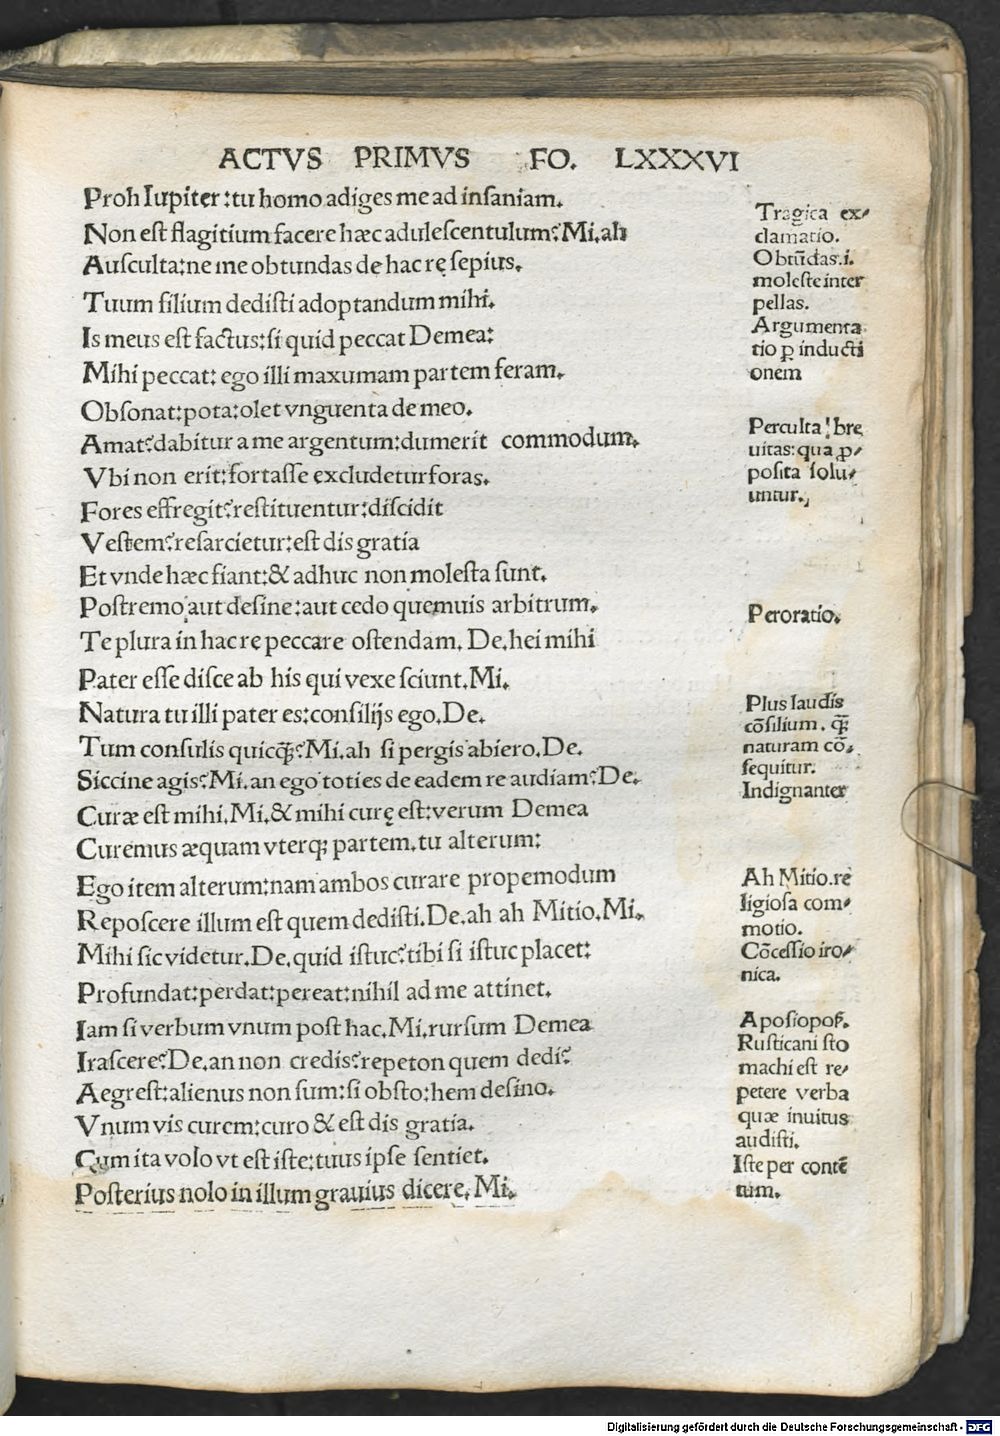 ACTVS PRIMVS FO. LXXXVI
Proh Iupiter:tu homo adiges me ad inſaniam.
Non eſt flagitium facere hæc aduleſcentulum? Mi.ah
Auſculta:ne me obtundas de hac rę ſepius.
Tuum filium dediſti adoptandum mihi.
Is meus eſt factus:ſi quid peccat Demea:
Mihi peccat: ego illi maxumam partem feram.
Obſonat:pota:olet vnguenta de meo.
Amat?dabitur a me argentum:dumerit commodum.
Vbi non erit:fortaſſe excludetur foras.
Fores effregit?reſtituentur:diſcidit
Veſtem?reſarcietur:eſt dis gratia
Et vnde hæc fiant:& adhuc non moleſta ſunt.
Poſtremo aut deſine:aut cedo quemuis arbitrum.
Te plura in hac rę peccare oſtendam. De.hei mihi
Pater eſſe diſce ab his qui vexe ſciunt.Mi.
Natura tu illi pater es:conſilijs ego.De.
Tum conſulis quicq̃?Mi.ah ſi pergis abiero.De.
Siccine agis?Mi.an ego toties de eadem re audiam?De.
Curæ eſt mihi.Mi.& mihi curę eſt:verum Demea
Curemus æquam vterq; partem.tu alterum:
Ego item alterum:nam ambos curare propemodum
Repoſcere illum eſt quem dediſti.De.ah ah Mitio.Mi.
Mihi ſic videtur.De.quid iſtuc?tibi ſi iſtuc placet:
Profundat:perdat:pereat:nihil ad me attinet.
Iam ſi verbum vnum poſt hac.Mi.rurſum Demea
Iraſcere?De.an non credis?repeton quem dedi?
Aegreſt:alienus non ſum:ſi obſto:hem deſino.
Vnum vis curem:curo & eſt dis gratia.
Cum ita volo vt eſt iſte:tuus ipſe ſentiet.
Poſterius nolo in illum grauius dicere. Mi.
Tragica ex-
clamatio.
Obtũdas.i.
moleſte inter
pellas.
Argumenta
tio ꝑ inducti
onem
Perculta! bre
uitas:qua ꝓ-
poſita ſolu-
untur.
Peroratio.
Plus laudis
cõſilium. q̃
naturam cõ-
ſequitur.
Indignanter
Ah Mitio.re
ligioſa com-
motio.
Cõceſſio iro-
nica.
Apoſiopoſ.
Ruſticani ſto
machi eſt re-
petere verba
quæ inuitus
audiſti.
Iſte per contẽ
tum.
Digitalisierung gefördert durch die Deutsche Forschungsgemeinschaft - DFG